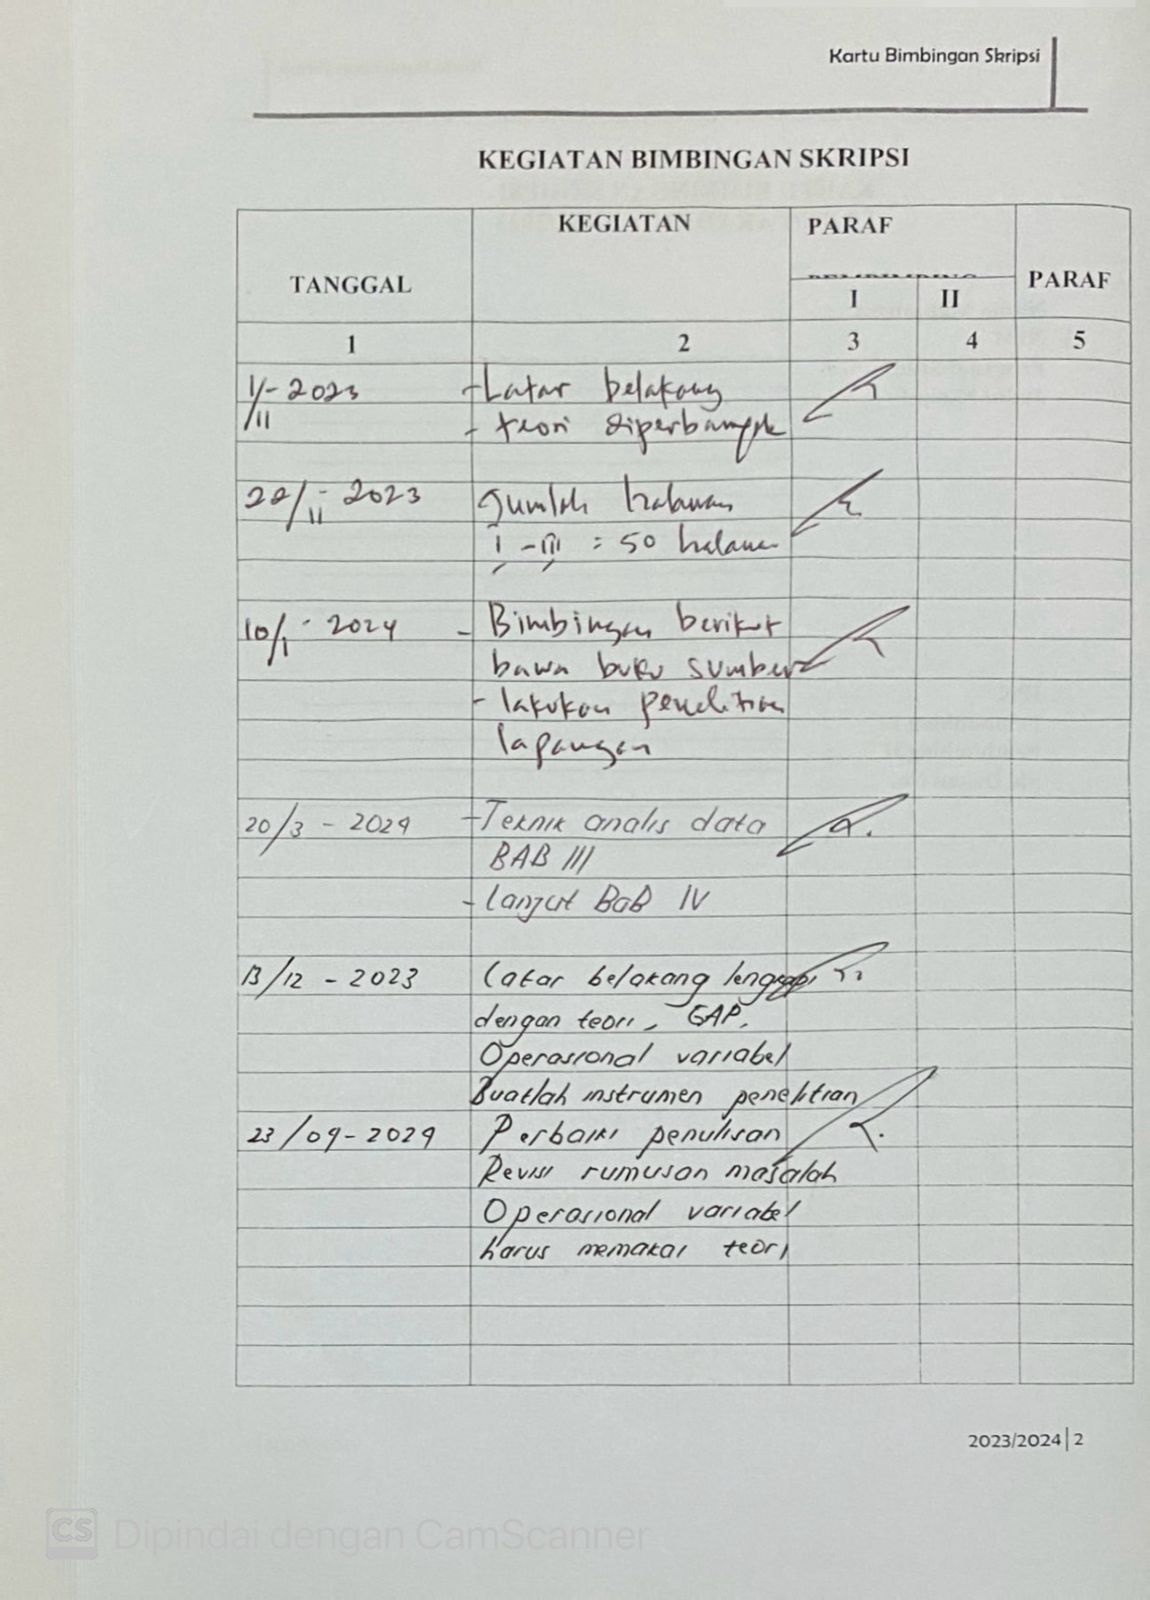 Kartu Bimbingan Skripsi
KEGIATAN BIMBINGAN SKRIPSI
TANGGAL KEGIATAN PARAF PARAF
I II
1 2 3 4 5
1/11 - 2023 - Latar belakang
- teori diperbanyak
22/11 - 2023 Jumlah halaman
I - III = 50 halaman
10/1 - 2024 - Bimbingan berikut
bawa buku sumber
- lakukan penelitian
lapangan
20/3 - 2024 - Teknik analis data
BAB III
- lanjut BaB IV
13/12 - 2023 Latar belakang lengkapi
dengan teori, GAP,
Operasional variabel
Buatlah instrumen penelitian
23/09 - 2024 Perbaiki penulisan
Revisi rumusan masalah
Operasional variabel
harus memakai teori
2023/2024|2
CS Dipindai dengan CamScanner